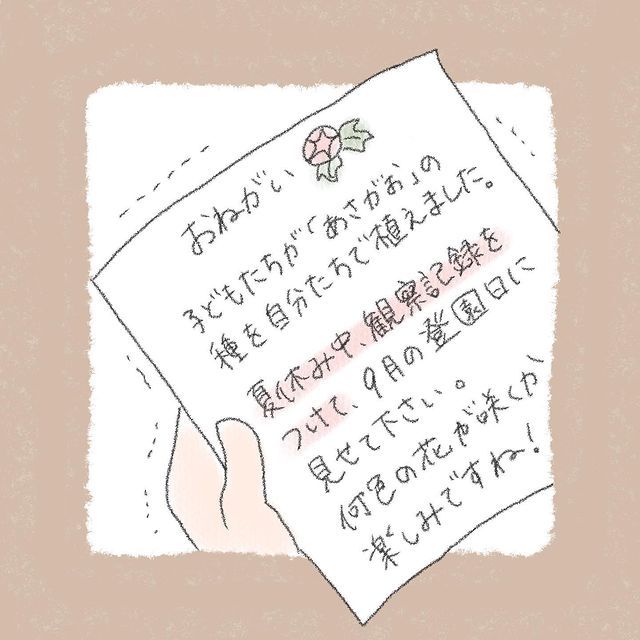 おねがい
子どもたちが「あさがお」の
種を自分たちで植えました。
夏休み中、観察記録を
つけて、9月の登園日に
見せて下さい。
何色の花が咲くか、
楽しみですね!